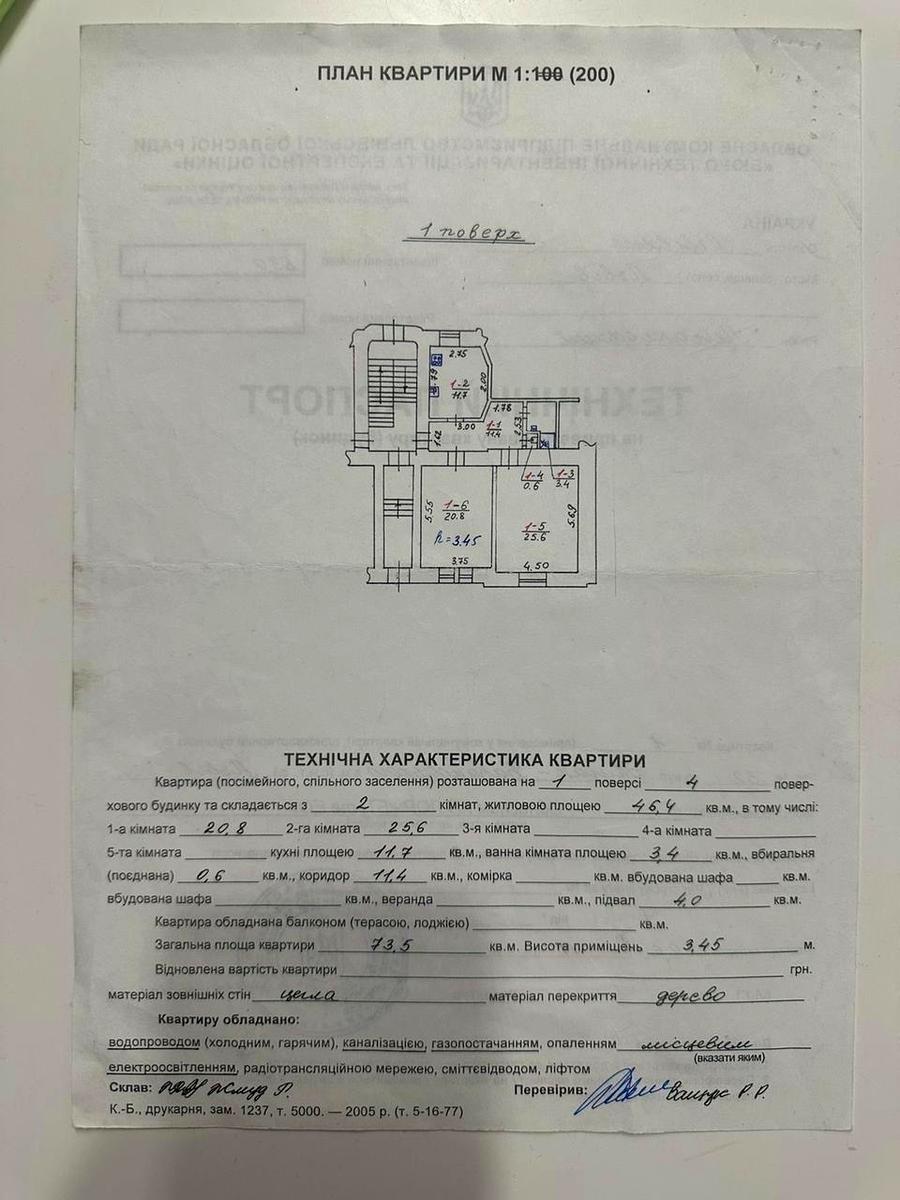 ПЛАН КВАРТИРИ М 1:100 (200)
1 поверх
2.75
1-2
11.7
2.00
3.00
1.78
1-1
11.4
2.53
1.62
1-4
0.6
1-3
3.4
5.55
1-6
20.8
h=3.45
3.75
1-5
25.6
5.69
4.50
ТЕХНІЧНА ХАРАКТЕРИСТИКА КВАРТИРИ
Квартира (посімейного, спільного заселення) розташована на 1 поверсі 4 повер-
хового будинку та складається з 2 кімнат, житловою площею 46,4 кв.м., в тому числі:
1-а кімната 20,8 2-га кімната 25,6 3-я кімната 4-а кімната
5-та кімната кухні площею 11,7 кв.м., ванна кімната площею 3,4 кв.м., вбиральня
(поєднана) 0,6 кв.м., коридор 11,4 кв.м., комірка кв.м. вбудована шафа кв.м.
вбудована шафа кв.м., веранда кв.м., підвал 4,0 кв.м.
Квартира обладнана балконом (терасою, лоджією) кв.м.
Загальна площа квартири 73,5 кв.м. Висота приміщень 3,45 м.
Відновлена вартість квартири грн.
матеріал зовнішніх стін цегла матеріал перекриття дерево
Квартиру обладнано:
водопроводом (холодним, гарячим), каналізацією, газопостачанням, опаленням місцевим
(вказати яким)
електроосвітленням, радіотрансляційною мережею, сміттєвідводом, ліфтом
Склав: Перевірив: Р.Р.
К.-Б., друкарня, зам. 1237, т. 5000. — 2005 р. (т. 5-16-77)